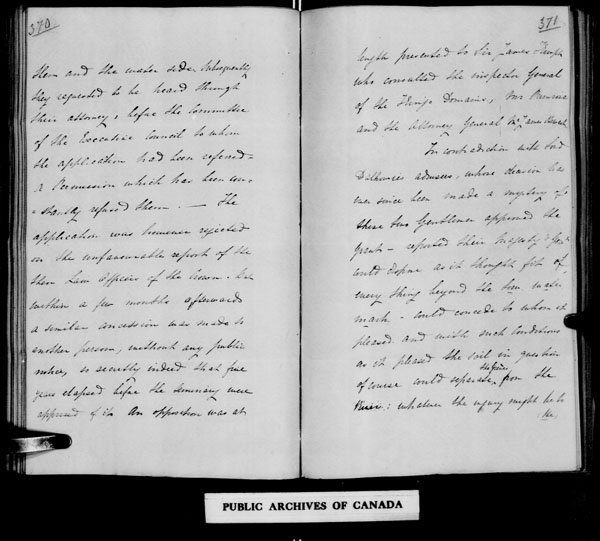 370
them and the water side. Subsequently
they requested to be heard through
their attorney, before the Committee
of the Executive Council to whom
the application had been referred -
a Permission which has been con-
- stantly refused them. — The
application was however rejected
on the unfavourable report of the
then Law Officers of the Crown. But
within a few months afterwards
a similar concession was made to
another person, without any public
notice, so secretly indeed that five
years elapsed before the Seminary were
apprised of it. An opposition was at
371
length presented to Sir James Kempt
who consulted the inspector General
of the Kings Domains, Mr Primrose
and the Attorney General Mr James Stuart
In contradiction with Lord
Dalhousies advisers, whose decision has
ever since been made a mystery of,
these two Gentlemen approved the
Grant - reported that Majesty's Govt
could dispose as it thought fit of
every thing beyond the low water
mark - could concede to whom it
pleased and with such conditions
as it pleased the soil in question
of course could separate the from the
River: whatever the injury might be to
the
PUBLIC ARCHIVES OF CANADA